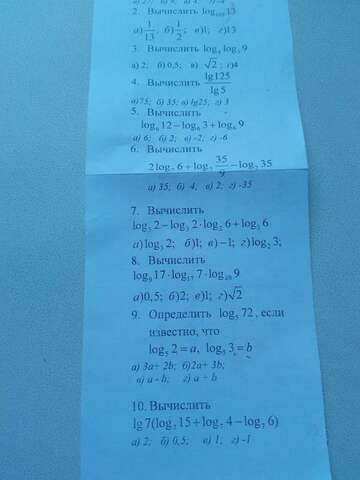 2. Вычислить log₁₆₉13
а) 1/13; б) 1/2; в)1; г)13
3. Вычислить log₉ log₄ 9
а) 2; б) 0,5; в) √2 ; г)4
4. Вычислить lg125/lg5
а)75; б) 35; в) lg25; г) 3
5. Вычислить
log₆ 12 – log₆ 3 + log₆ 9
а) 6; б) 2; в) -2; г) -6
6. Вычислить
2 log₇ 6 + log₇ 35/9 – log₇ 35
а) 35; б) 4; в) 2; г) -35
7. Вычислить
log₃ 2 – log₃ 2·log₂ 6 + log₃ 6
а) log₃ 2; б)1; в) –1; г) log₂ 3;
8. Вычислить
log₉ 17·log₁₇ 7·log 9
а)0,5; б)2; в)1; г)√2
9. Определить log₅ 72, если
известно, что
log₅ 2 = a, log₅ 3 = b
а) 3a+ 2b; б)2a+ 3b;
в) a - b; г) a + b
10. Вычислить
lg 7(log₇ 15 + log₇ 4 – log₇ 6)
а) 2; б) 0,5; в) 1; г) -1